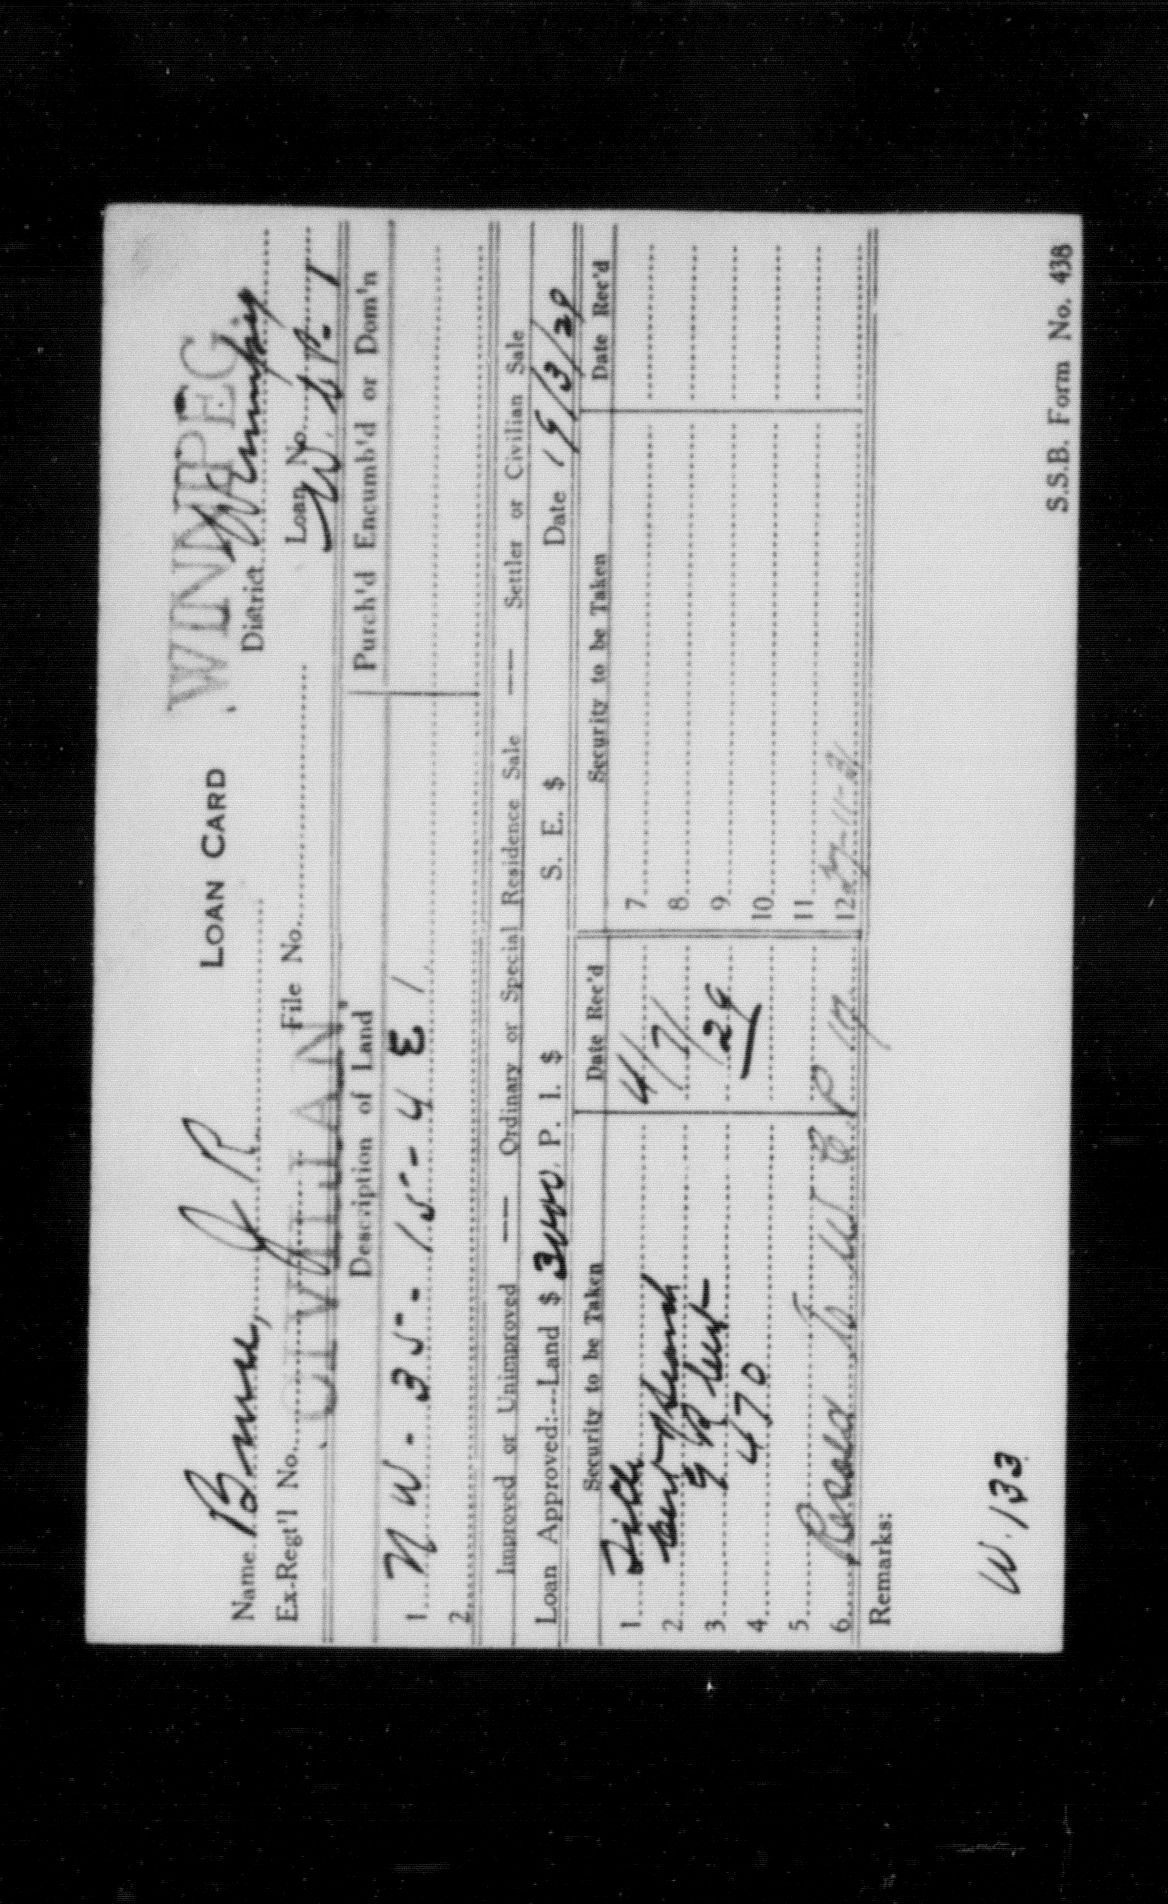 LOAN CARD
WINNIPEG.
Name J R District Winnipeg
Ex-Reg't'l No. File No. Loan No. W. SP. 1
CIVILIAN
Description of Land Purch'd Encumb'd or Dom'n
1 N W - 35 - 15 - 4 E 1
2
Improved or Unimproved —— Ordinary or Special Residence Sale —— Settler or Civilian Sale
Loan Approved:—Land $ P. I. $ S. E. $ Date 19/3/29
Security to be Taken Date Rec'd Security to be Taken Date Rec'd
1 Title 4/ 7
2 7/ 8
3 /29 9
4 470 10
5 11
6 12 27-11-31
Remarks:
W. 133
S.S.B. Form No. 438